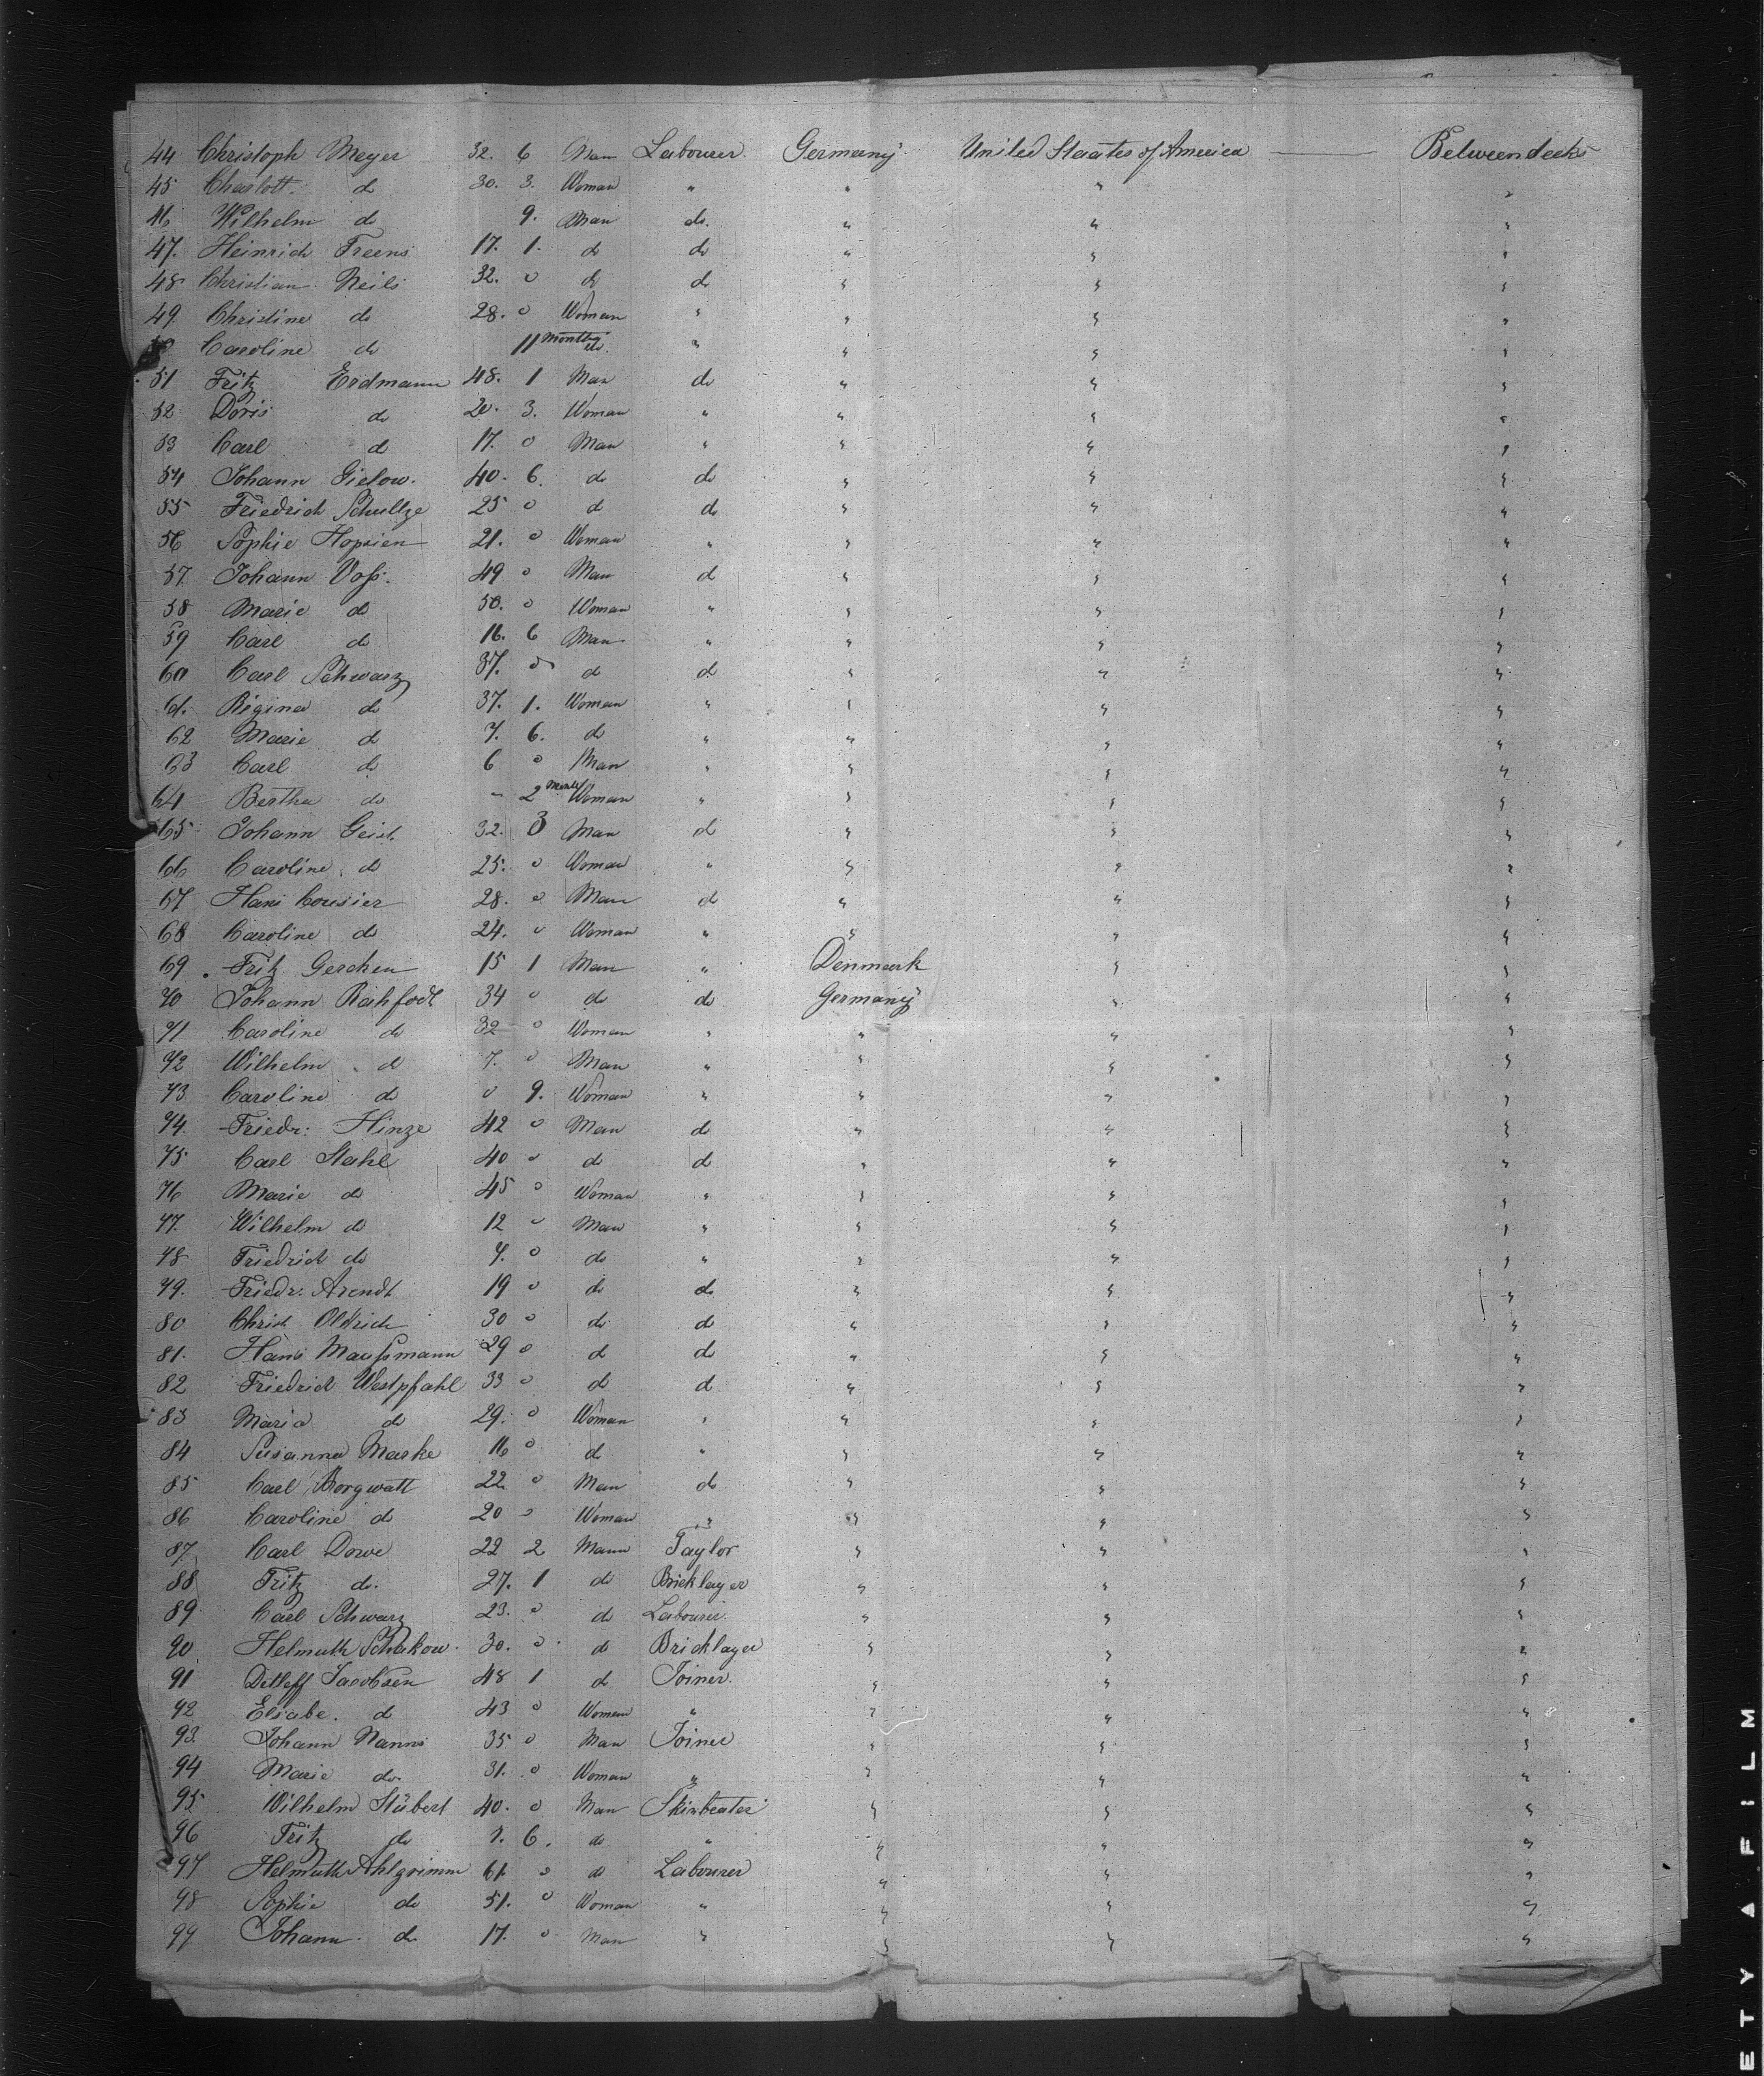 44 Christoph Meyer 32. 6 Man Labourer. Germany United Staates of America — Betweendecks
45 Charlott. do 30. 3. Woman " " " "
46 Wilhelm do 9. Man do. " " "
47. Heinrich Freens 17. 1. do do " " "
48 Christian Neils 32. 0 do do " " "
49. Christine do 28. 0 Woman " " " "
Caroline do 11 Months do. " " " "
51 Fritz Erdmann 48. 1 Man do " " "
52 Doris do 20. 3. Woman " " " "
53 Carl do 17. 0 Man " " " "
54 Johann Gielow. 40. 6. do do " " "
55 Friedrich Schultze 25 0 do do " " "
56 Sophie Hopsien 21. 0 Woman " " " "
57 Johann Voß. 49 0 Man do " " "
58 Marie do 50. 0 Woman " " " "
59 Carl do 16. 6 Man " " " "
60 Carl Schwarz 37. 0 do do " " "
61. Regina do 37. 1. Woman " " " "
62 Marie do 7. 6. do " " " "
63 Carl do 6 0 Man " " " "
64 Bertha do - 2 Months Woman " " " "
65 Johann Geist. 32. 3 Man do " " "
66 Caroline do 25. 0 Woman " " " "
67 Hans Cousier 28. 0 Man do " " "
68 Caroline do 24. 0 Woman " " " "
69. Fritz Gerchen 15 1 Man " Denmark " "
70 Johann Rahfodt 34 0 do do Germany " "
71 Caroline do 32 0 Woman " " " "
72 Wilhelm do 7. 0 Man " " " "
73 Caroline do 0 9. Woman " " " "
74. Friedr: Hinze 42 0 Man do " " "
75 Carl Stahl 40 0 do do " " "
76 Marie do 45 0 Woman " " " "
77. Wilhelm do 12 0 Man " " " "
78 Friedrich do 7. 0 do " " " "
79. Friedr. Arendt 19 0 do do " " "
80 Christ Oldrich 30 0 do do " " "
81. Hans Maußmann 29 0 do do " " "
82 Friedrich Westpfahl 33 0 do do " " "
83 Maria do 29. 0 Woman " " " "
84 Susanna Marke 16 0 do " " " "
85 Carl Borgwatt 22 0 Man do " " "
86 Caroline do 20 0 Woman " " " "
87. Carl Dowe 22 2 Mann Taylor " " "
88 Fritz do. 27. 1 do Bricklayer " " "
89 Carl Schwarz 23. 0 do Labourer. " " "
90 Helmuth Schakow. 30. 0 do Bricklayer " " "
91 Detleff Jacobsen 48 1 do Joiner. " " "
92 Elsabe. do 43 0 Woman " " " "
93. Johann Nanns 35 0 Man Joiner " " "
94 Marie do. 31. 0 Woman " " " "
95 Wilhelm Stübert 40. 0 Man Skinbeater " " "
96 Fritz do 7. 6. do " " " "
97 Helmuth Ahlgrimm 61. 0 do Labourer " " "
98 Sophie do 51. 0 Woman " " " "
99 Johann. do 17. 0 Man " " " "
ETY A FILM